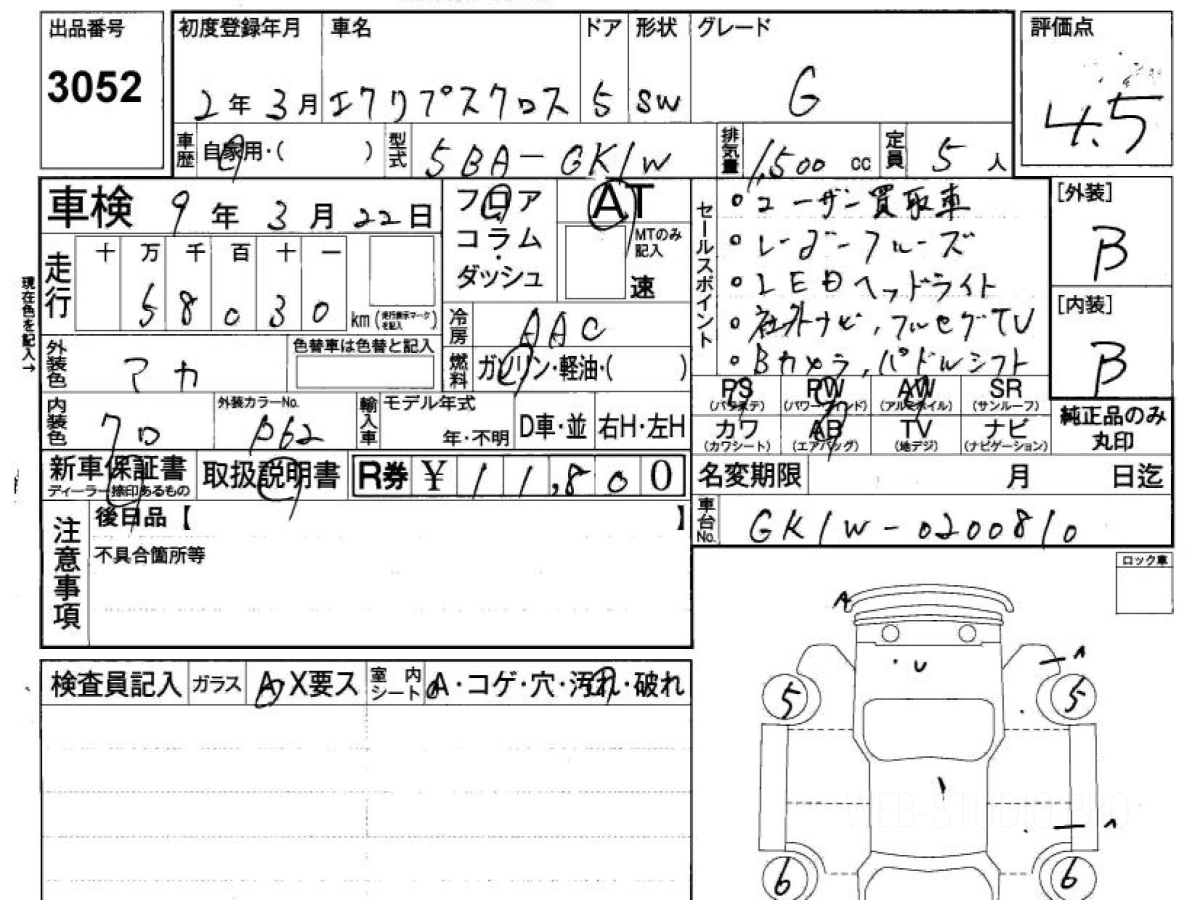 出品番号
3052
初度登録年月 車名 ドア 形状 グレード
2年3月 エクリプスクロス 5 SW G
評価点
4.5
車歴 自家用・( ) 型式 5BA-GK1W 排気量 1,500 cc 定員 5人
車検 9年3月22日
フロア
コラム
・
ダッシュ
AT
MTのみ
記入
速
セールスポイント
・ユーザー買取車
・レーダークルーズ
・LEDヘッドライト
・社外ナビ,フルセグTV
・Bカメラ,パドルシフト
[外装]
B
[内装]
B
現在色を記入→
走行
十 万 千 百 十 一
5 8 0 3 0 km (走行表示マークを記入)
冷房 AAC
燃料 ガソリン・軽油・( )
外装色 マカ
色替車は色替と記入
内装色 クロ
外装カラーNo.
P62
輸入車 モデル年式
年・不明
D車・並 右H・左H
PS PW AW SR
(パワステ) (パワーウインド) (アルミホイル) (サンルーフ)
カワ AB TV ナビ
(カワシート) (エアバッグ) (地デジ) (ナビゲーション)
純正品のみ
丸印
新車保証書
ディーラー捺印あるもの
取扱説明書
R券 ¥ 11,800
名変期限 月 日迄
車台No. GK1W-0200810
注意事項
後日品【 】
不具合箇所等
ロック車
検査員記入 ガラス A X要ス 室内シート A・コゲ・穴・汚れ・破れ
A
U
A
5 5
A
6 6
WEB-STUDIO PRO